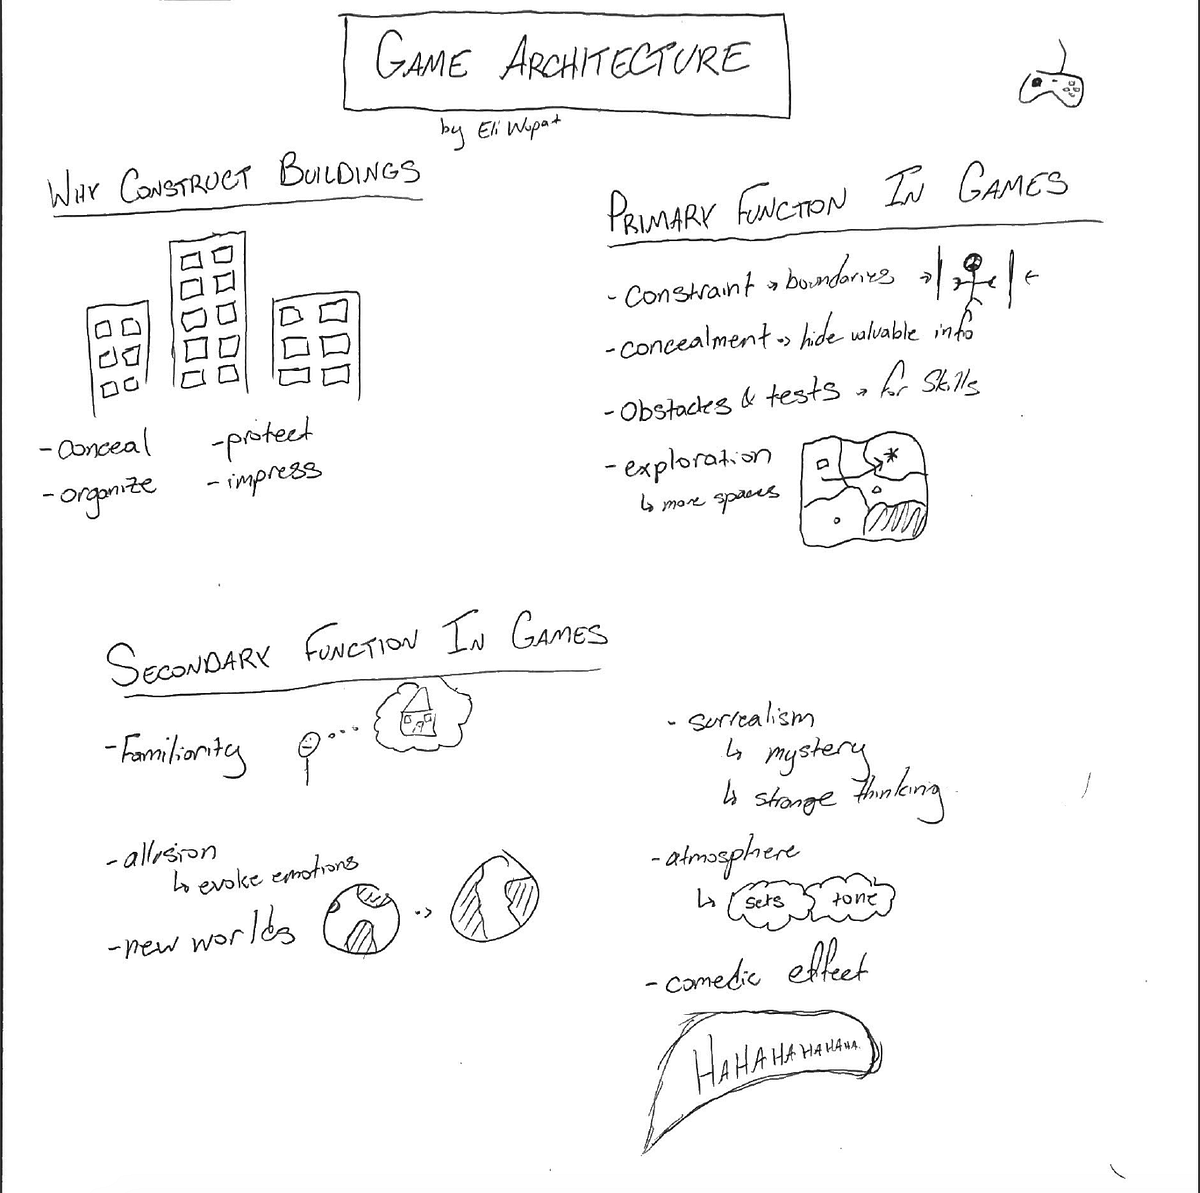 GAME ARCHITECTURE
by Eli Wupat
WHY CONSTRUCT BUILDINGS
-conceal
-protect
-organize
-impress
PRIMARY FUNCTION IN GAMES
-constraint → boundaries
-concealment → hide valuable info
-Obstacles & tests → for skills
-exploration
↳ more spaces
SECONDARY FUNCTION IN GAMES
-Familiarity
-allusion
↳ evoke emotions
-new worlds
- surrealism
↳ mystery
↳ strange thinking
-atmosphere
↳ sets tone
-comedic effect
HAHAHAHAHAHA.